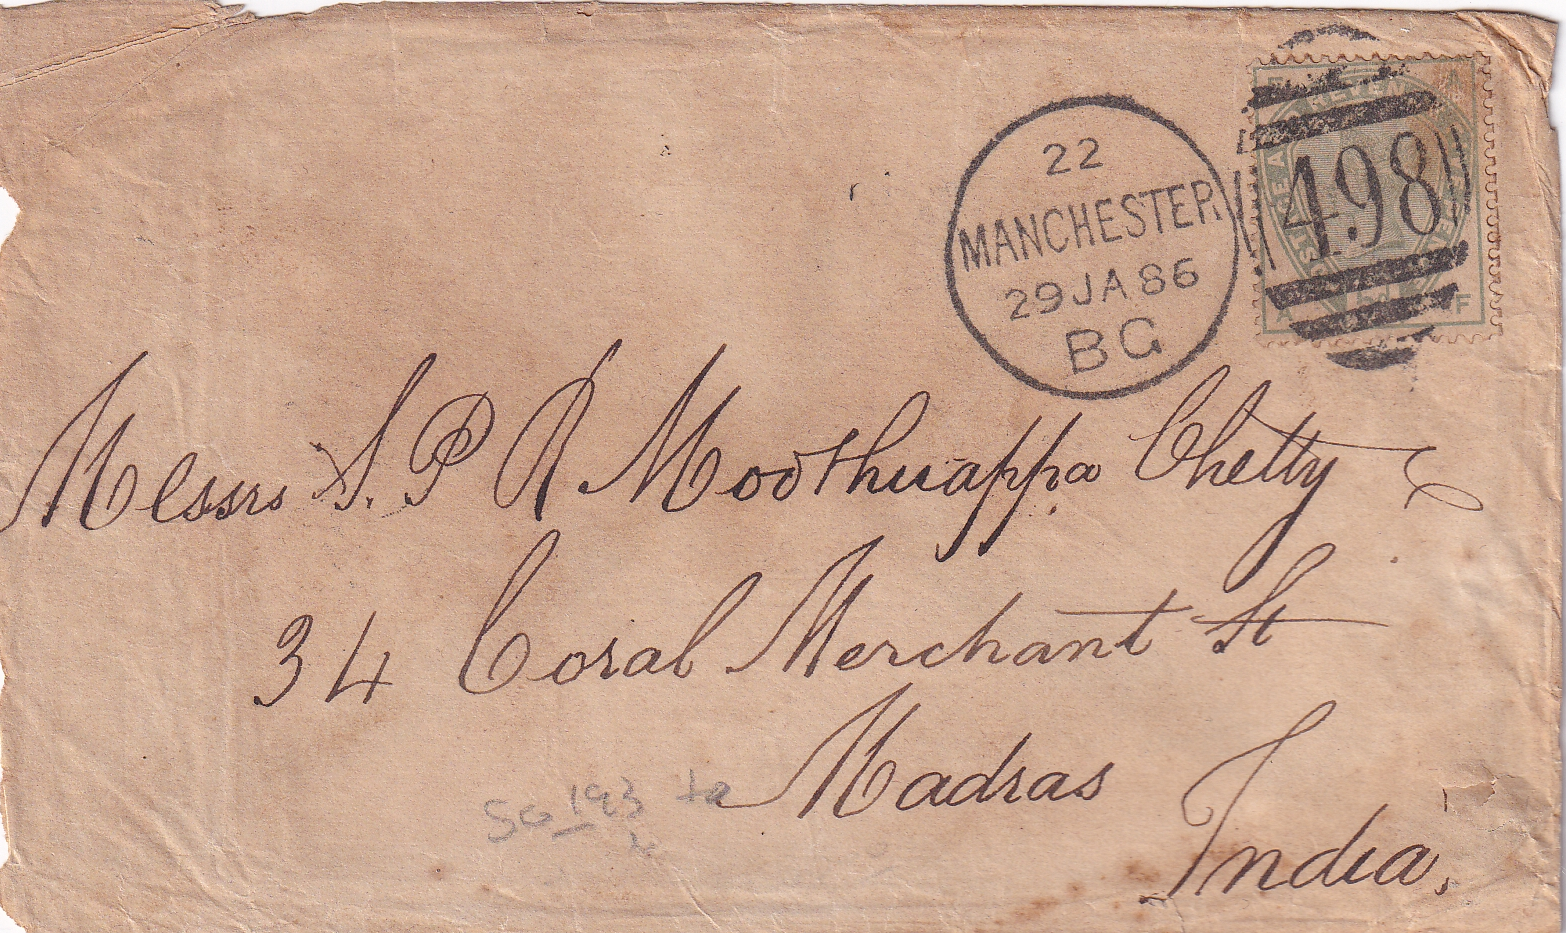 22
MANCHESTER
29 JA 86
BG
498
Messrs S. P R Moothuappa Chetty
34 Coral Merchant St
Madras
India.
SG 193 to